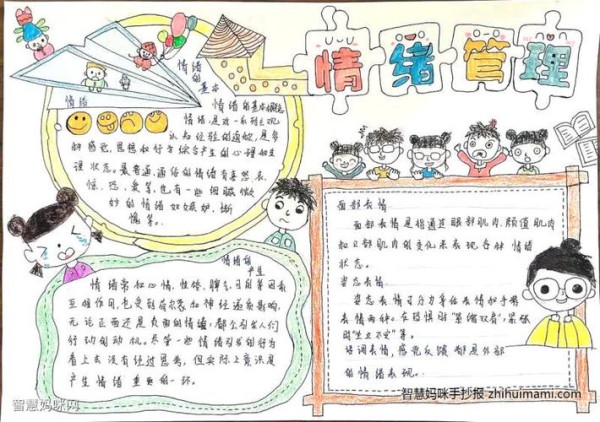 情绪管理
情绪
的
基本
情绪
情绪的基本概念
情绪,是对一系列主观
认知经验的通称,是多
种感觉、思想和行为综合产生的心理和生
理状态。最普遍、通俗的情绪有喜、怒、哀、
惊、恐、爱等,也有一些细腻微
妙的情绪如嫉妒、惭
愧等。
情绪的
产生
情绪常和心情、性格、脾气、目的等因素
互相作用,也受到荷尔蒙和神经递质影响,
无论正面还是负面的情绪,都会引发人们
行动的动机。尽管一些情绪引发的行为
看上去没有经过思考,但实际上意识是
产生情绪重要的一环。
面部表情
面部表情是指通过眼部肌肉、颜面肌肉
和口部肌肉的变化来表现各种情绪
状态。
姿态表情
姿态表情可分为身体表情和手势
表情两种。在恐惧时"紧缩双肩",紧张
时"坐立不安"等。
语调表情,感觉反馈都是外部
的情绪表现。
智慧妈咪网
智慧妈咪手抄报 zhihuimami.com